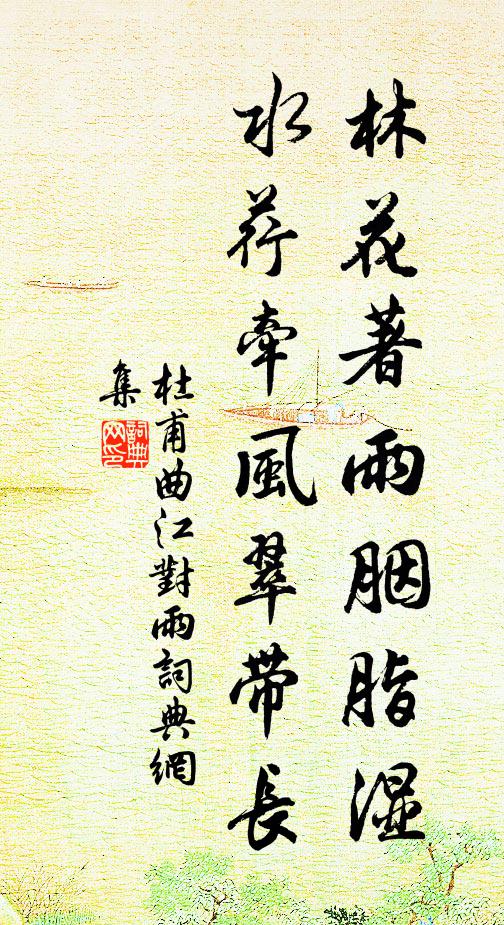 林花著雨胭脂湿
水荇牽風翠带長
杜甫曲江對雨詞典網
集
詞典网印